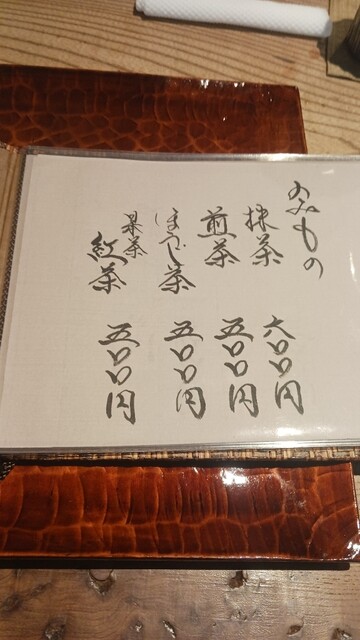 のみもの
抹茶 六〇〇円
煎茶 五〇〇円
ほうじ茶 五〇〇円
果茶
紅茶 五〇〇円